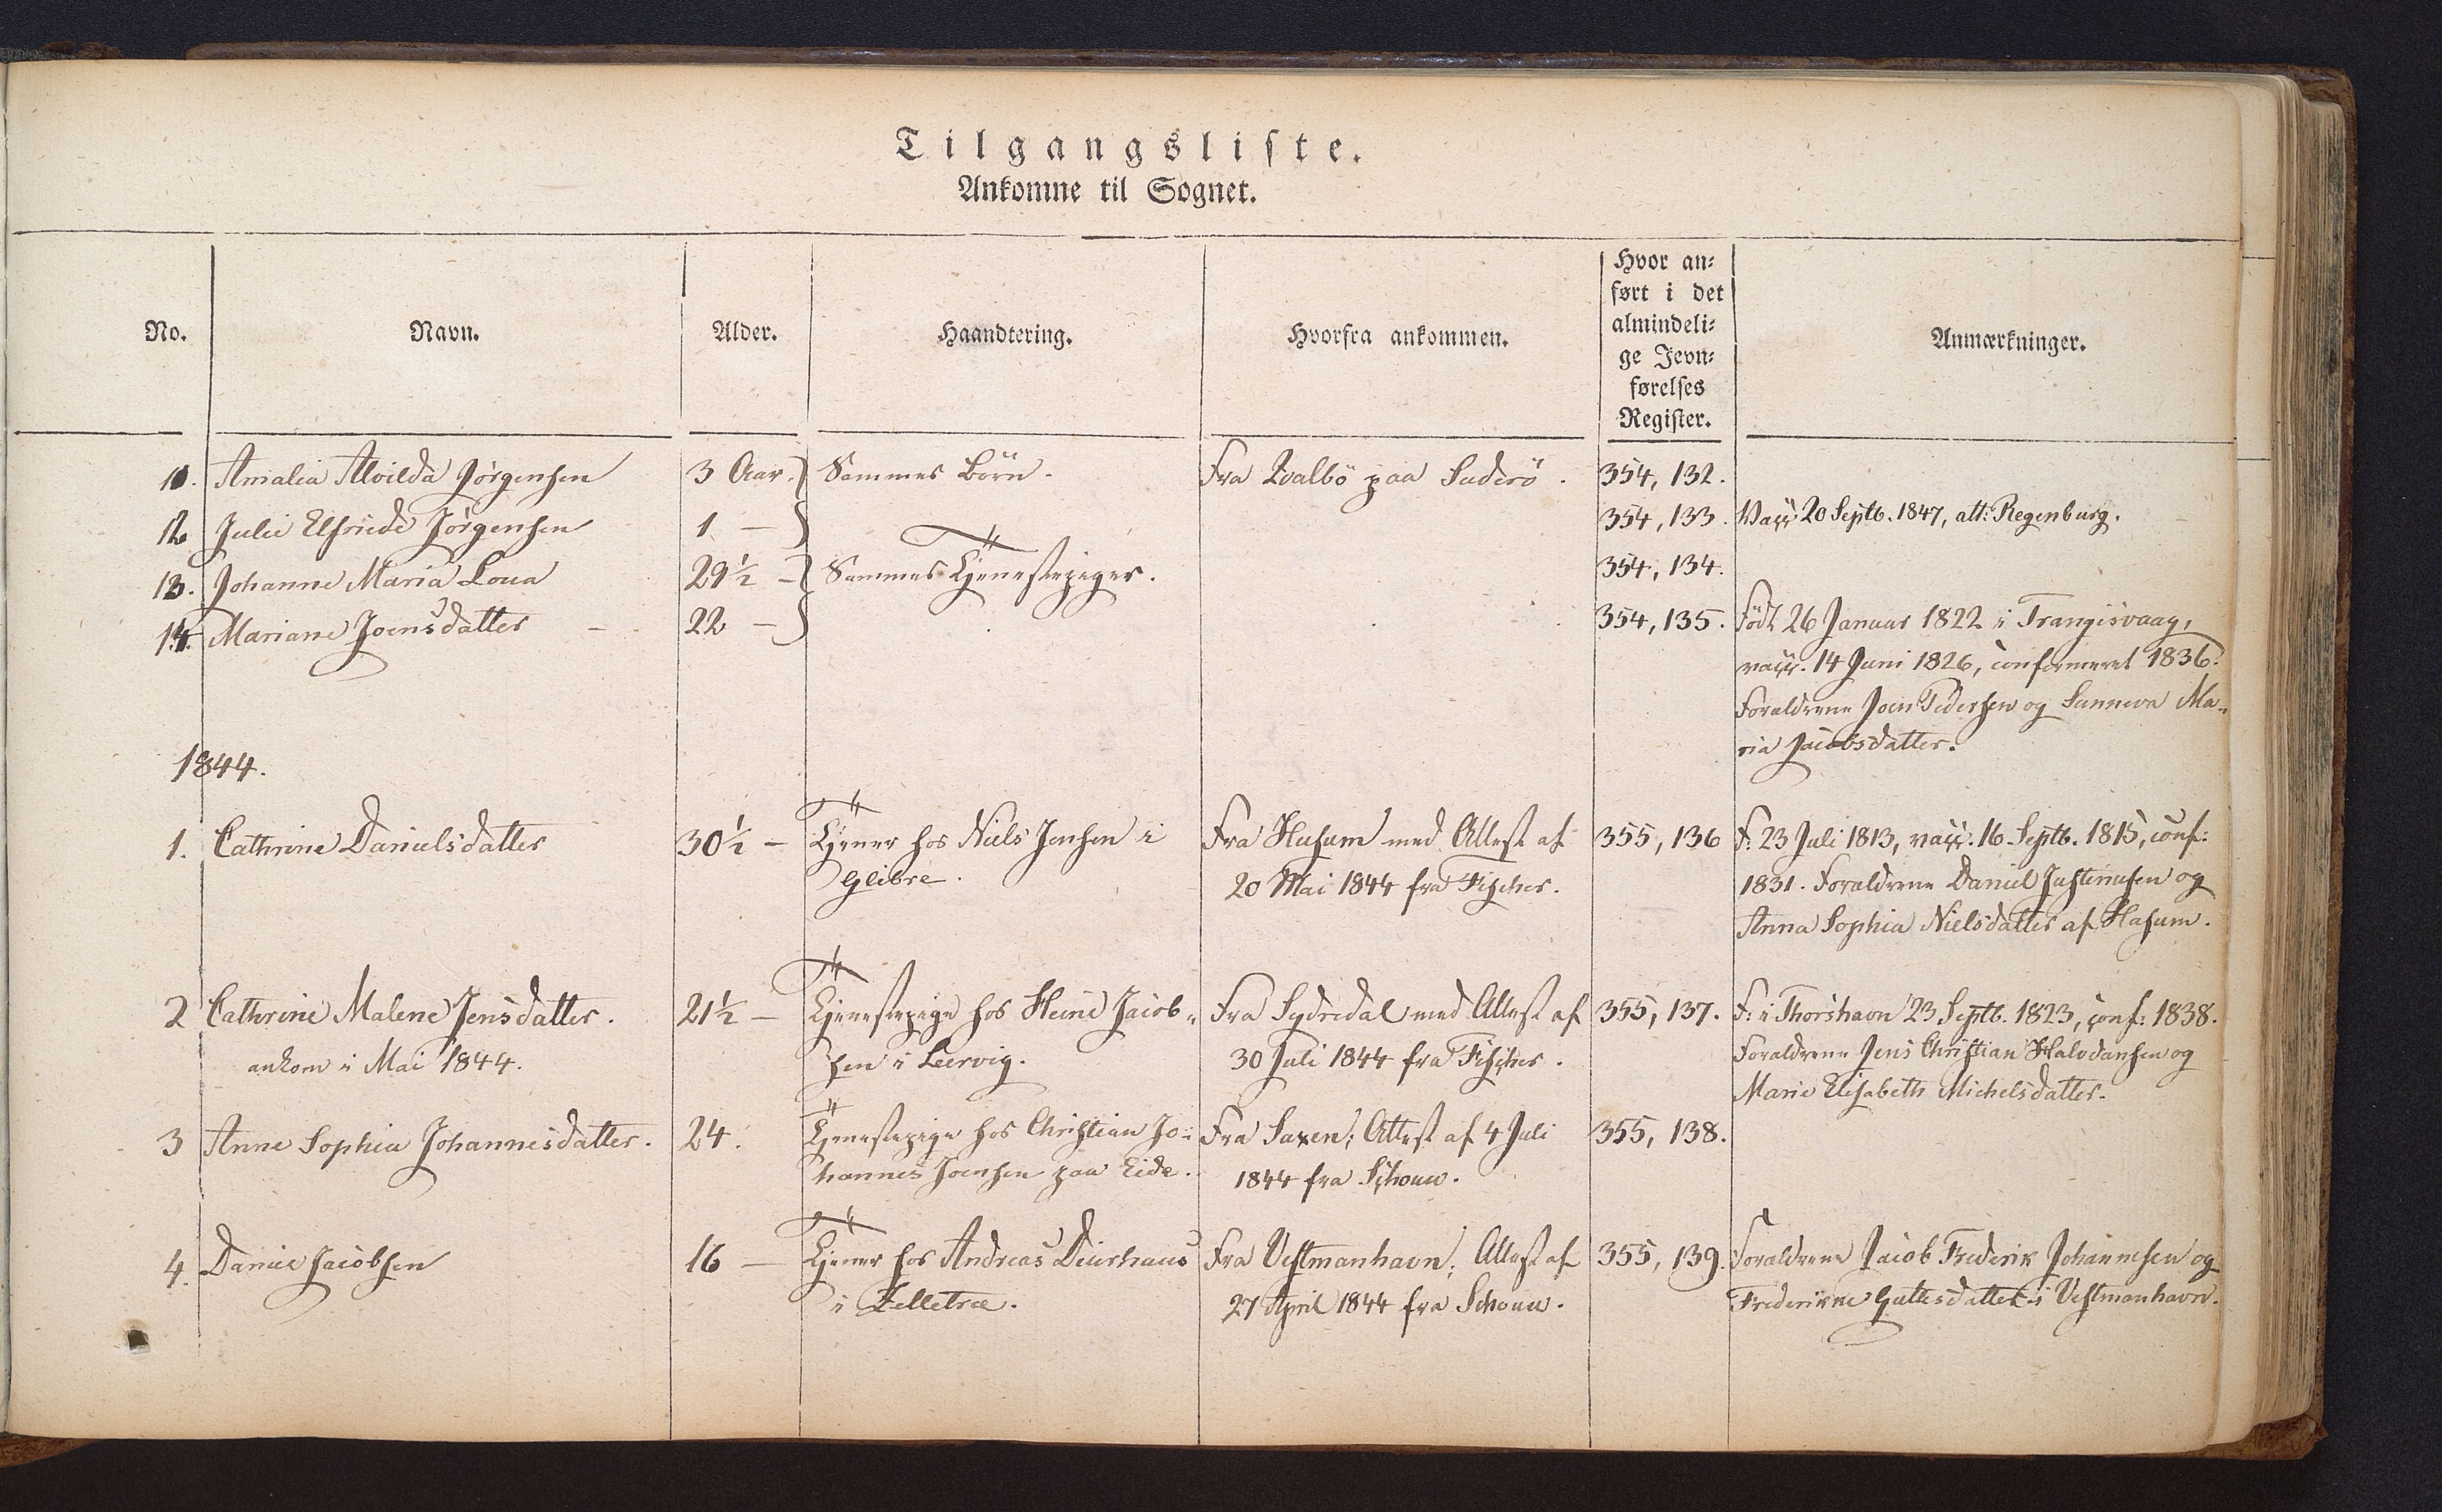 Tilgangsliste.
Ankomne til Sognet.
No. Navn. Alder. Haandtering. Hvorfra ankommen. Hvor an-
ført i det
almindeli-
ge Jevn-
førelses
Register. Anmærkninger.
11. Amalia Alvilda Jörgensen 3 Aar. Sammes Börn. Fra Qvalbö paa Suderö. 354, 132.
12 Julie Elfriede Jörgensen 1 — 354, 133. Vacc 20 Septb. 1847, att: Regenburg.
13. Johanne Maria Loua 29½ — Sammes Tjenestepiger. 354, 134.
14. Mariane Joensdatter 22 — 354, 135. Födt 26 Januar 1822 i Trangisvaag,
vacc. 14 Juni 1826, confirmeret 1836.
Forældrene Joen Pedersen og Sunneva Ma-
ria Jacobsdatter.
1844.
1. Cathrine Danielsdatter 30½ — Tjener hos Niels Jensen i
Glibre. Fra Husum med Attest af
20 Mai 1844 fra Fischer. 355, 136 F: 23 Juli 1813, vacc. 16 Septb. 1815, conf:
1831. Forældrene Daniel Justinusen og
Anna Sophia Nielsdatter af Husum.
2 Cathrine Malene Jensdatter.
ankom i Mai 1844. 21½ — Tjenestepige hos Heine Jacob-
sen i Leervig. Fra Sydredal med Attest af
30 Juli 1844 fra Fischer. 355, 137. F: i Thorshavn 23 Septb. 1823, conf: 1838.
Forældrene Jens Christian Halvdansen og
Marie Elisabeth Michelsdatter.
3 Anne Sophia Johannesdatter. 24. Tjenestepige hos Christian Jo-
hannes Joensen paa Eide. Fra Saxen; Attest af 4 Juli
1844 fra Schouw. 355, 138.
4. Daniel Jacobsen 16 — Tjener hos Andreas Diurhuus
i Zelletræ. Fra Vestmanhavn; Attest af
27 April 1844 fra Schouw. 355, 139. Forældrene Jacob Frederik Johannesen og
Frederikke Guttesdatter i Vestmanhavn.